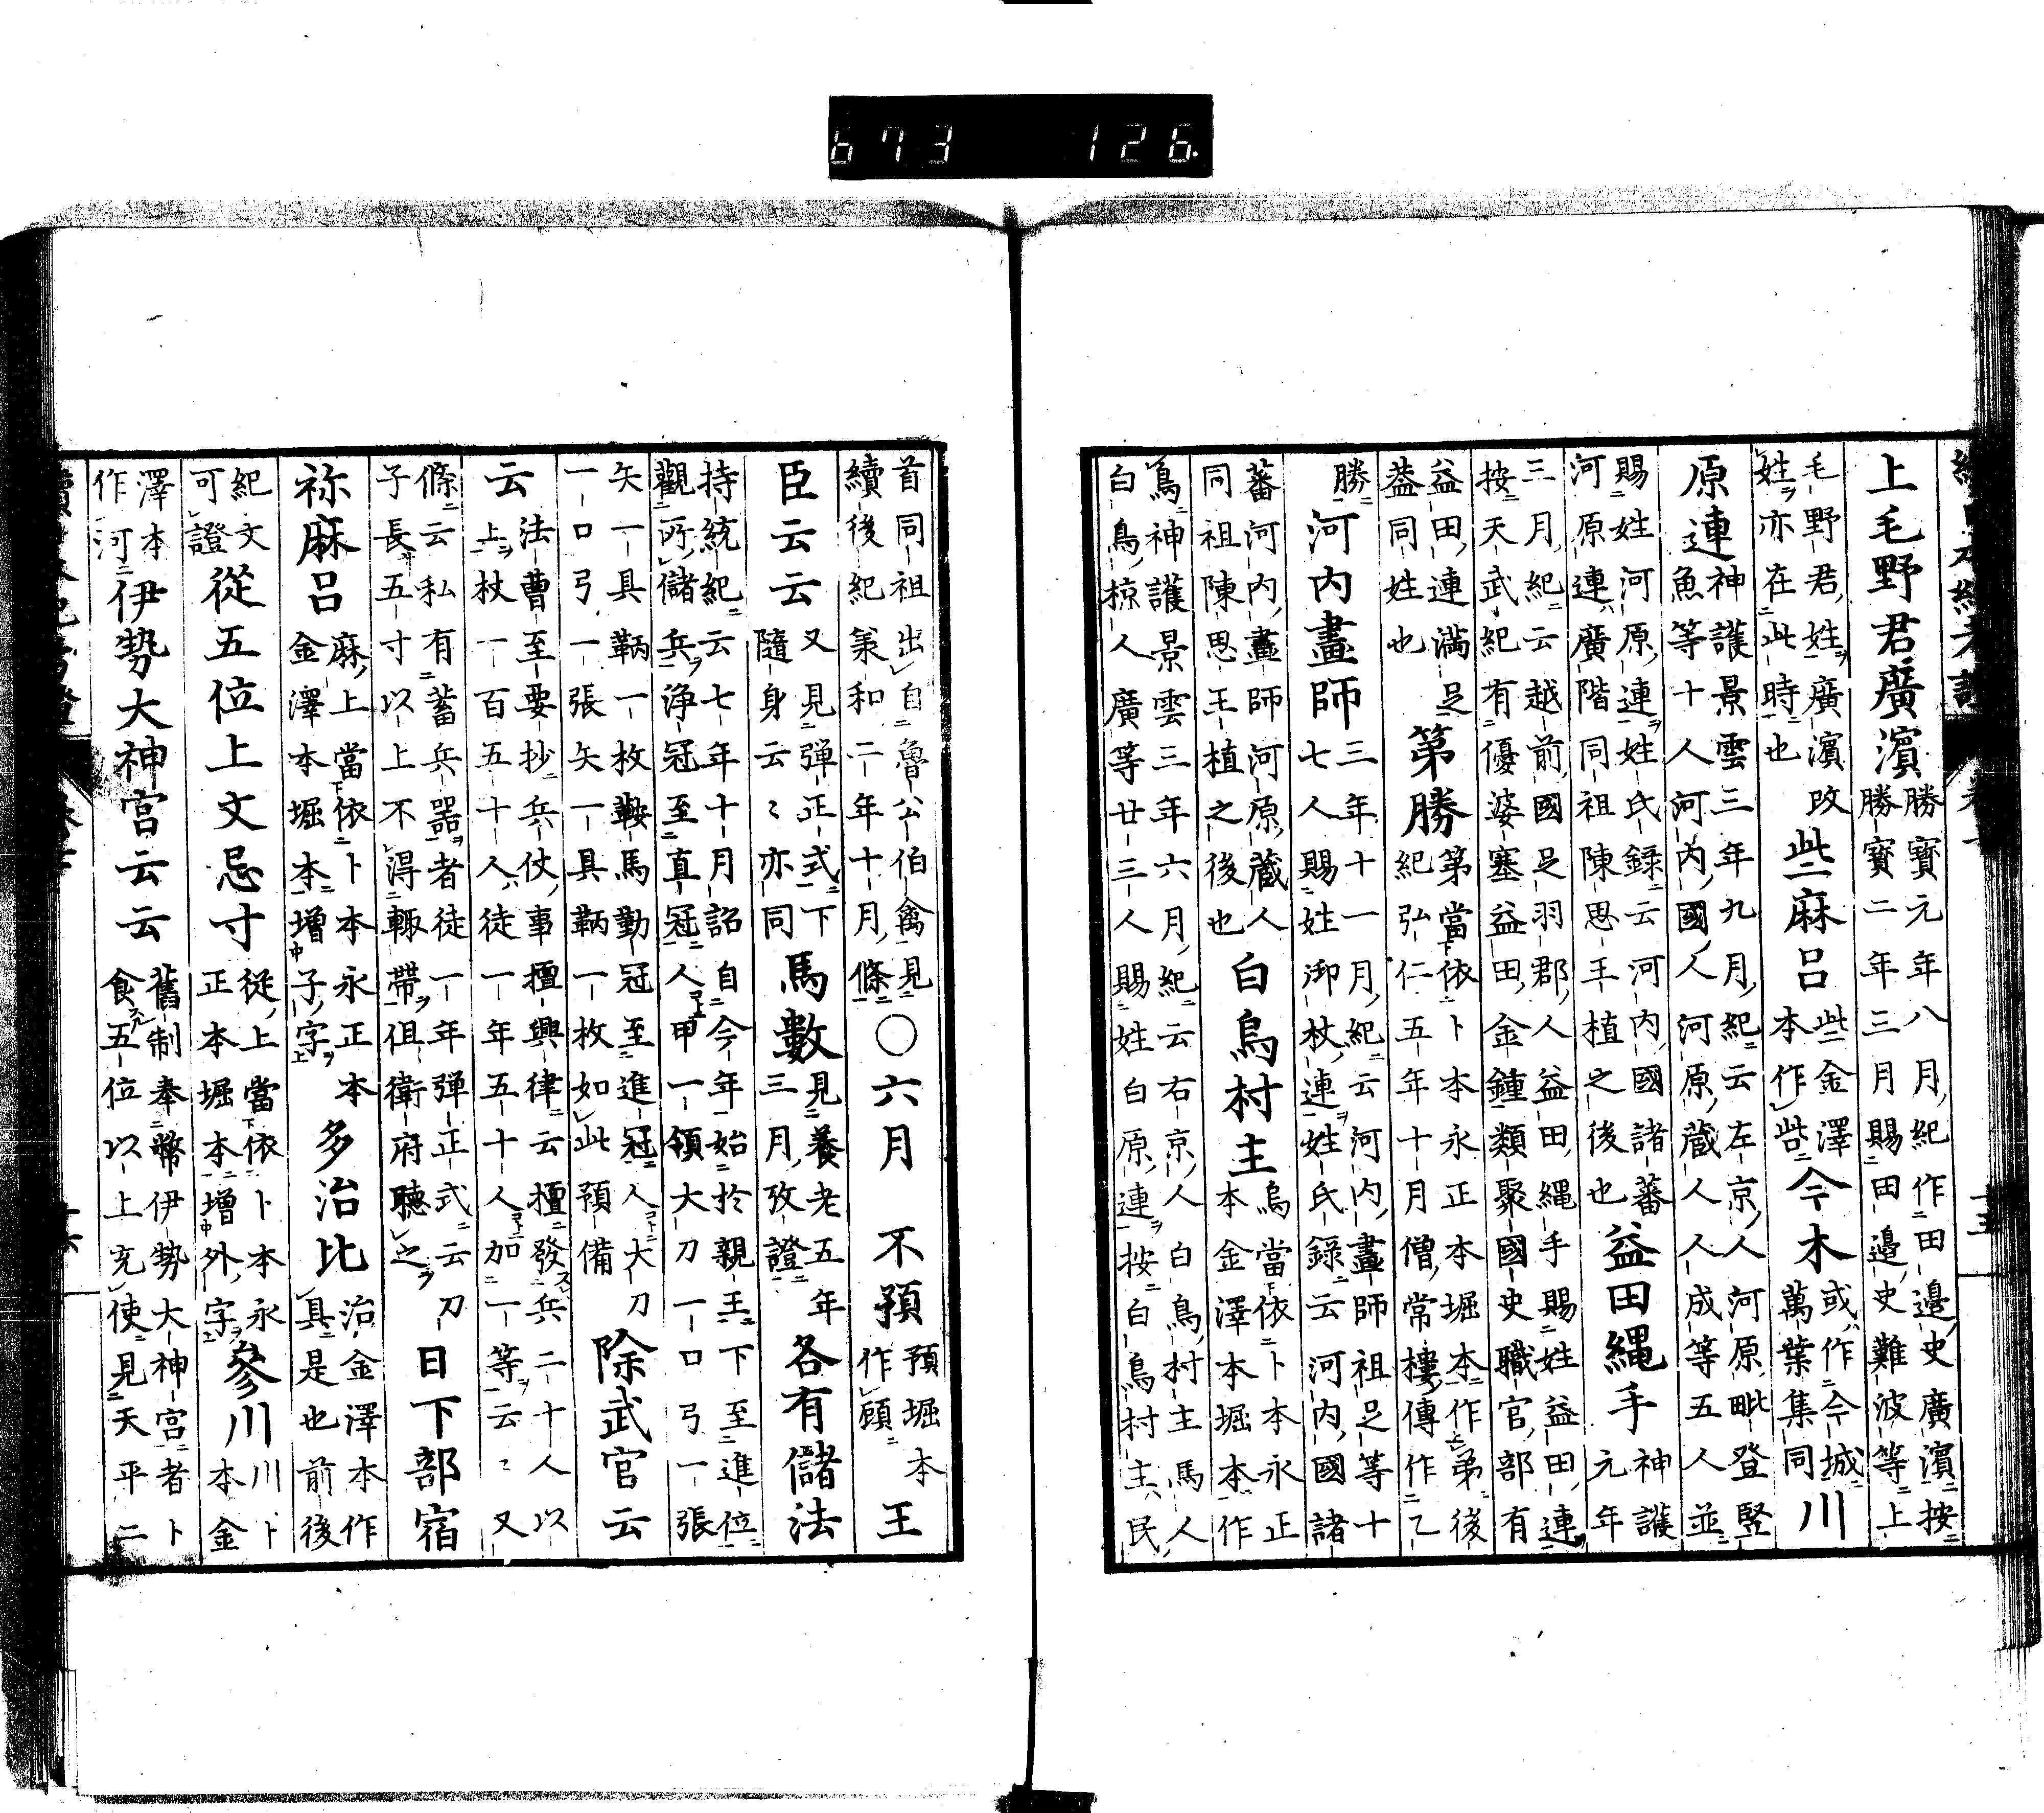 673 126.
上毛野君廣濱 勝寳元年八月紀作田邉史廣濱按
勝寳二年三月賜田邉史難波等上
毛野君姓廣濱改
姓亦在此時也 些麻呂 些金澤
本作呰 今木 或作今城
萬葉集同 川
原連 神護景雲三年九月紀云左京人河原毗登堅
魚等十人河内國人河原蔵人人成等五人並
賜姓河原連姓氏録云河内國諸蕃
河原連廣階同祖陳思王植之後也 益田縄手 神護
元年
三月紀云越前國足羽郡人益田縄手賜姓益田連
按天武紀有優婆塞益田金鍾類聚國史職官部有
益田連満足
葢同姓也 第勝 第當依卜本永正本堀本作弟後
紀弘仁五年十月僧常樓傳作乙
勝 河内畫師 三年十一月紀云河内畫師祖足等十
七人賜姓御杖連姓氏録云河内國諸
蕃河内畫師河原蔵人
同祖陳思王植之後也 白烏村主 烏當依卜本永正
本金澤本堀本作
鳥神護景雲三年六月紀云右京人白鳥村主馬人
白鳥椋人廣等廿三人賜姓白原連按白鳥村主民
首同祖出自魯公伯禽見
續後紀兼和二年十月條 〇六月 不預 預堀本
作願 王
臣云云 又見弾正式下
隨身云〻亦同 馬數 見養老五年
三月攷證 各有儲法
持統紀云七年十月詔自今年始於親王下至進位
觀所儲兵浄冠至直冠人甲一領大刀一口弓一張
矢一具鞆一枚鞍馬勤冠至進冠人大刀
一口弓一張矢一具鞆一枚如此預備 除武官云
云 法曹至要抄兵仗事擅興律云擅發兵二十人以
上杖一百五十人徒一年五十人加一等云〻又
條云私有蓄兵器者徒一年弾正式云刀
子長五寸以上不得輙帶但衛府聴之 日下部宿
祢麻呂 麻上當依卜本永正本
金澤本堀本增子字 多治比 治金澤本作
具是也前後
紀文
可證 從五位上文忌寸 從上當依卜本永
正本堀本增外字 參川 川卜
本金
澤本
作河 伊勢大神宮云云 舊制奉幣伊勢大神宮者卜
食五位以上充使見天平二